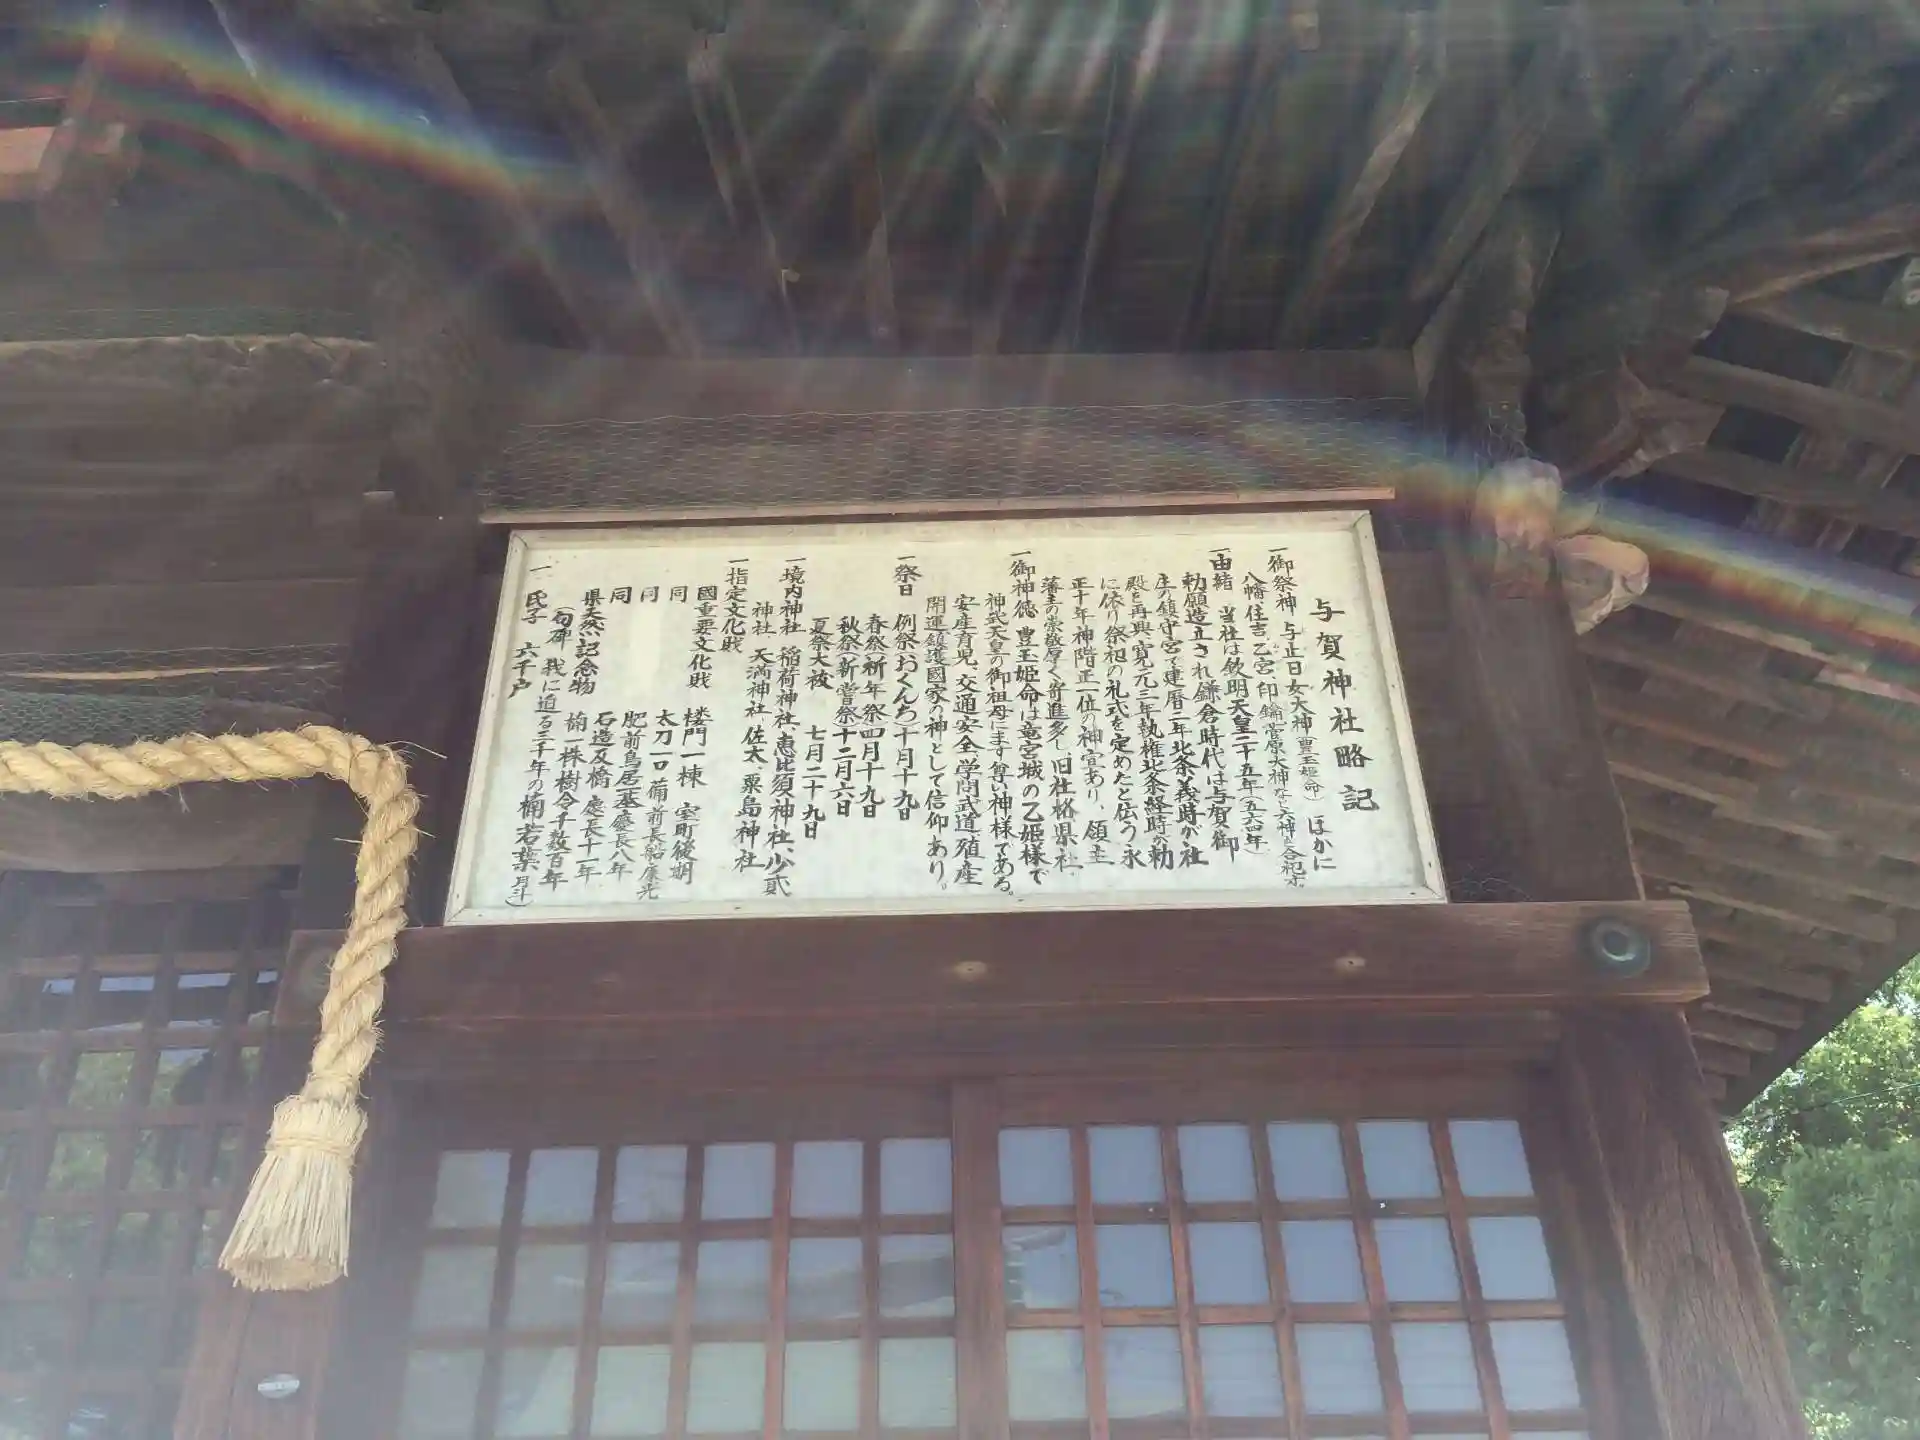 与賀神社略記
一御祭神 与止日女大神(豊玉姫命) ほかに
八幡、住吉、乙宮、印鑰、菅原大神など六神を合祀す。
一由緒 当社は欽明天皇二十五年(五六四年)
勅願造立され鎌倉時代は与賀御
庄の鎮守宮で建暦二年北条義時が社
殿を再興、寛元三年執権北条経時が勅
に依り祭祀の礼式を定めたと伝う永
正十年神階正一位の神宣あり、領主
藩主の崇敬厚く寄進多し、旧社格県社、
一御神徳 豊玉姫命は竜宮城の乙姫様で
神武天皇の御祖母にます尊い神様である。
安産育児、交通安全、学問武道、殖産
開運鎮護國家の神として信仰あり。
一祭日 例祭(おくんち)十月十九日
春祭(祈年祭)四月十九日
秋祭(新嘗祭)十二月六日
夏祭大祓 七月二十九日
一境内神社 稲荷神社、恵比須神社、少貳
神社、天満神社、佐太、粟島神社
一指定文化財
國重要文化財 楼門一棟 室町後期
同 太刀一口 備前長船康光
同 肥前鳥居一基 慶長八年
同 石造反橋 慶長十一年
県天然記念物 楠一株樹令千数百年
(句碑 我に迫る三千年の楠若葉 月斗)
一 氏子 六千戸